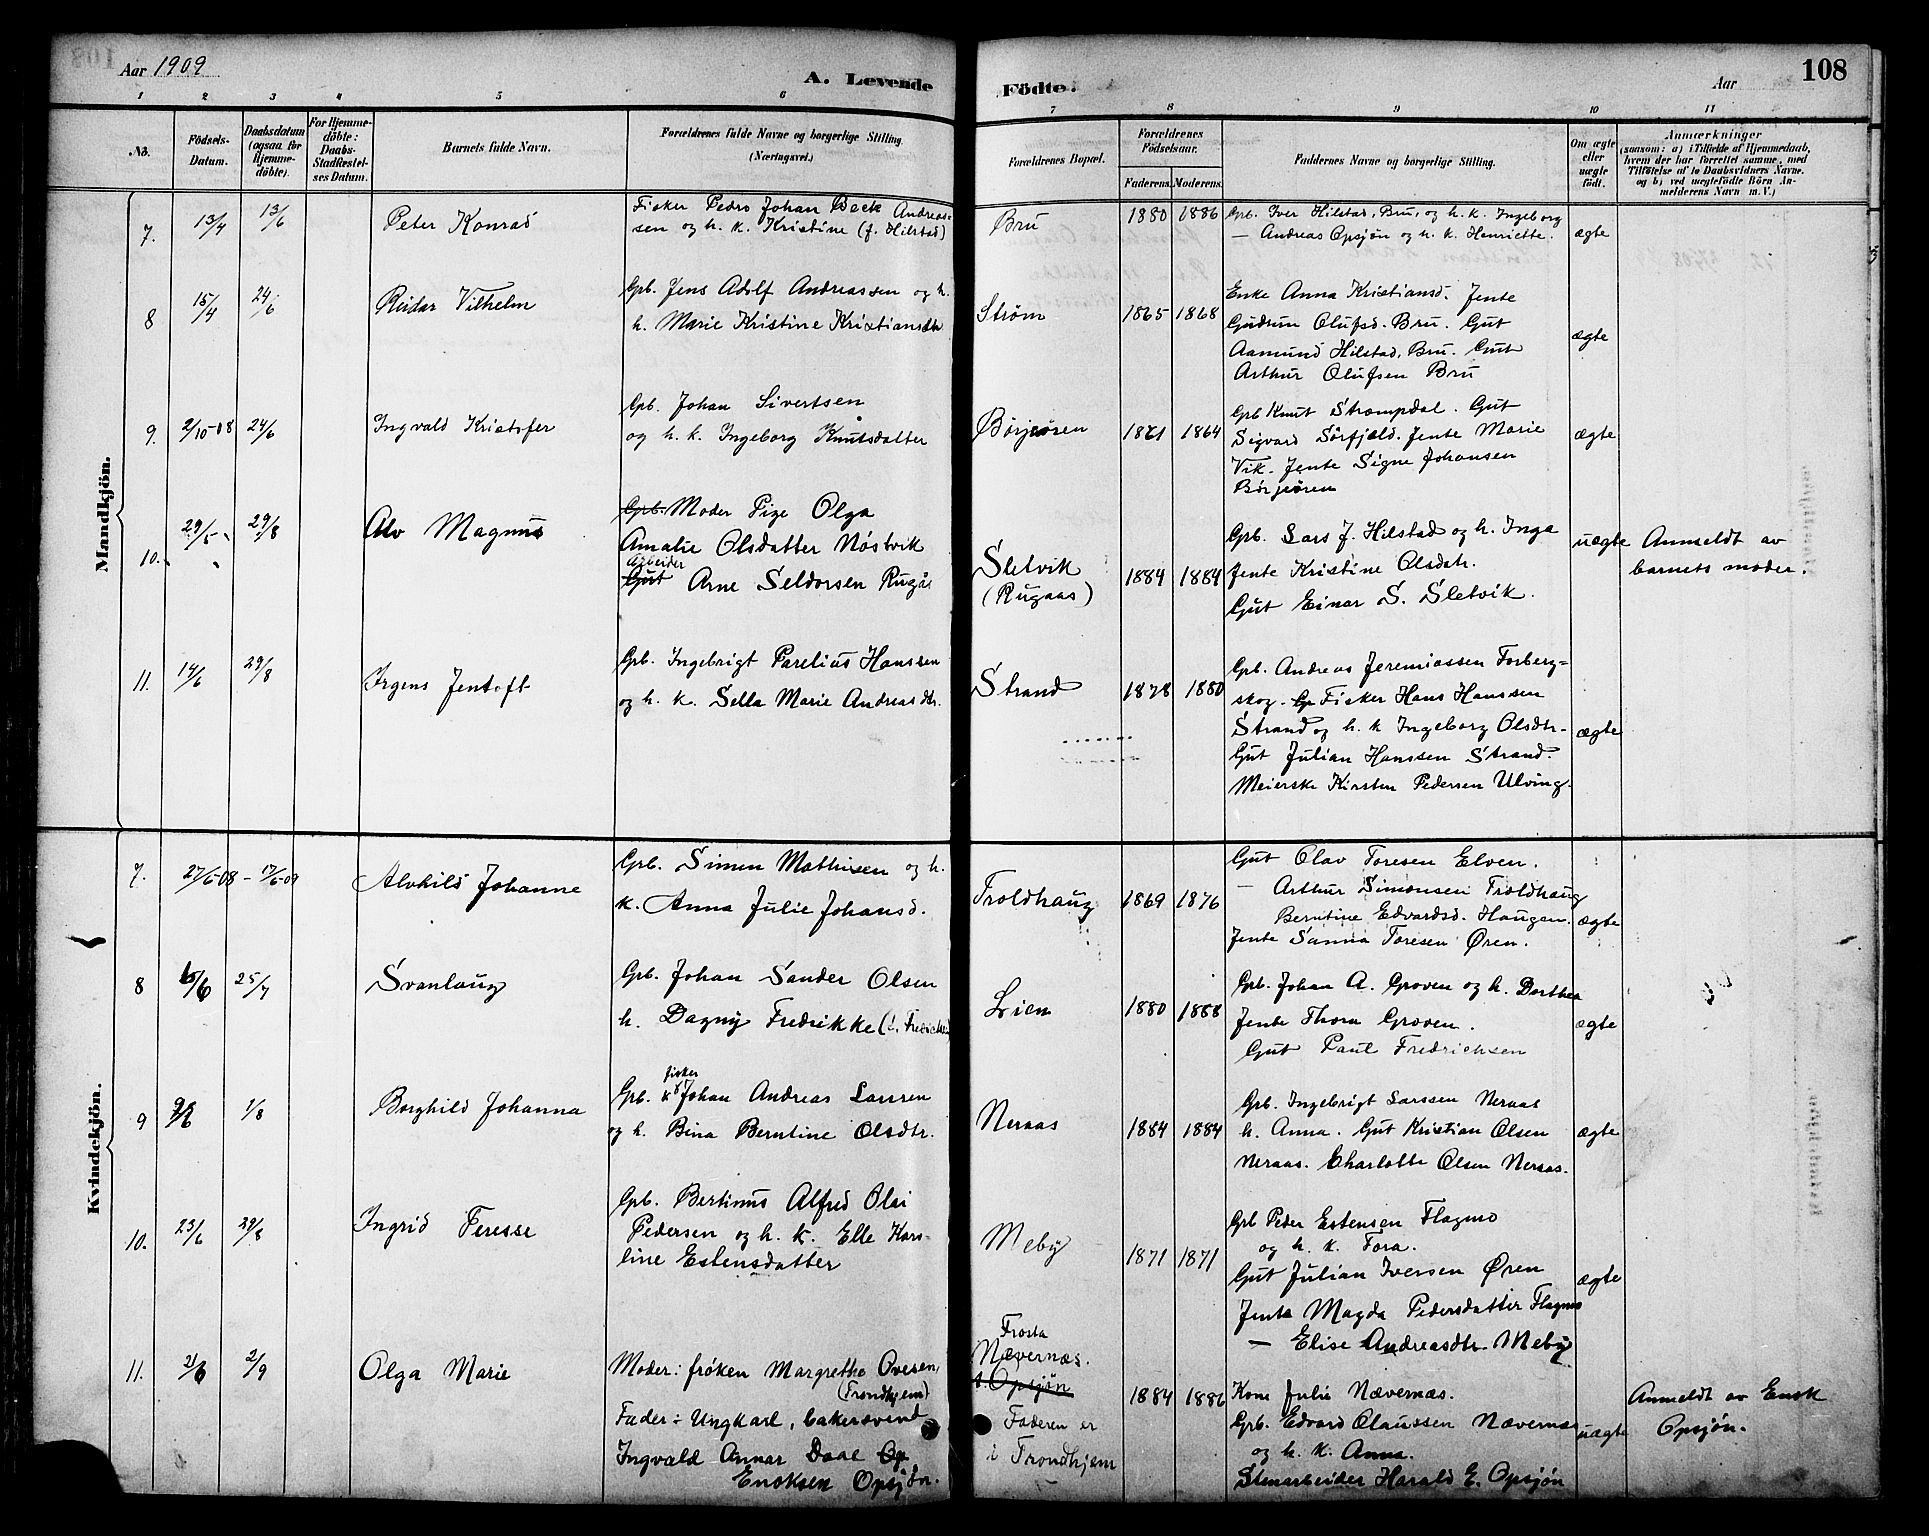 Aar 1909
A. Levende
Födte.
Aar
108
1 2 3 4 5 6 7 8 9 10 11
No.
Födsels-Datum.
Daabsdatum (ogsaa for Hjemme-döbte).
For Hjemme-döbte: Daabs-Stadfæstel-ses Datum.
Barnets fulde Navn.
Forældrenes fulde Navne og borgerlige Stilling.
(Næringsvei.)
Forældrenes Bopæl.
Forældrenes Födselsaar.
Faderens. Moderens.
Faddernes Navne og borgerlige Stilling.
Om ægte eller uægte födt.
Anmærkninger
(saasom: a) i Tilfælde af Hjemmedaab, hvem der har forrettet samme, med Tilföielse af to Daabsvidners Navne, og b) ved uægtefödte Börn An-melderens Navn m. V.)
Mandkjön.
7. 13/4 13/6 Peter Konrad
Fisker Pedro Johan Beck Andreas-
sen og h. k. Kristine (f. Hilstad)
Bru 1880 1886
Grb. Iver Hilstad, Bru, og h. k. Ingeborg
— Andreas Opsjøn og h. k. Henriette.
ægte
8 15/4 24/6 Reidar Vilhelm
Gpb. Jens Adolf Andreassen og h.
h. Marie Kristine Kristiansdtr
Strøm 1865 1868
Enke Anna Kristiansd. Jente
Gudrun Olufsd. Bru. Gut
Aamund Hilstad, Bru. Gut
Arthur Olufsen Bru
ægte
9. 2/10-08 24/6 Ingvald Kristofer
Gpb. Johan Sivertsen
og h. k. Ingeborg Knutsdatter
Børjøren 1861 1864
Gpb Knut Strømpdal. Gut
Sigvard Sörfjeld. Jente Marie
Vik. Jente Signe Johansen
Börjøren
ægte
10. 29/5 29/8 Alv Magnus
Grb. Moder Pige Olga
Amalie Olsdatter Nöstvik
Arbeider
Gut Arne Seldorsen Rugås
Sletvik
(Rugaas)
1884 1884
Gpb. Lars J. Hilstad og h. Inga
Jente Kristine Olsdtr.
Gut Einar S. Sletvik.
uægte
Anmeldt av
barnets moder.
11. 14/6 29/8 Irgens Jentoft
Gpb. Ingebrigt Parelius Hanssen
og h. k. Sella Marie Andreasdtr.
Strand 1878 1880
Gpb. Andreas Jeremiassen Forberg-
skog. Gp Fisker Hans Hanssen
Strand og h. k Ingeborg Olsdtr-
Gut Julian Hanssen Strand.
Meierske Kirsten Pedersen Ulving.
ægte
Kvindekjön.
7. 27/6-08 – 17/6-09 Alvhild Johanne
Gpb. Simen Mathisen og h.
k. Anna Julie Johansd.
Troldhaug 1869 1876
Gut Olav Toresen Elven.
— Arthur Simonsen Troldhaug
Berntine Edvardsd. Haugen.
Jente Sanna Toresen Øren.
ægte
8 25/7 Svanlaug
Gpb. Johan Sander Olsen
h. Dagny Fredrikke
Lien 1880 1888
Gpb. Johan A. Groven og h. Dorthea
Jente Thora Groven.
Gut Paul Fredrichsen
ægte
9 1/8 Borghild Johanna
fisker
Gpb. x Johan Andreas Larssen
og h. Bina Berntine Olsdtr.
Neraas 1884 1884
Gpb. Ingebrigt Larssen Neraas
h. Anna. Gut Kristian Olsen
Neraas. Charlotte Olsen Neraas.
ægte
10. 23/6 29/8 Ingrid Teresse
Gpb. Bertinus Alfred Olai
Pedersen og h. k. Elle Kars-
line Estensdatter
Meby 1871 1871
Gpb Peder Estensen Flagmo
og h. k. Tora.
Gut Julian Iversen Øren
Jente Magda Pedersdatter Flagmo
— Elise Andreasdtr. Meby
ægte
11. 21/6 2/9 Olga Marie
Moder: frøken Margrethe Ovesen,
(Trondhjem)
Fader: Ungkarl, bakersvend
Ingvald Annar Daae Op
Enoksen Opsjøn.
Frosta
Nævernæs.
Opsjøn
Faderen er
i Trondhjem
1884 1886
Kone Julie Nævernæs.
Gpb. Edvard Olaussen Nævernæs
og h. k. Anna.
Stenarbeider Harald E. Opsjøn
uægte
Anmeldt av Enok
Opsjøn.